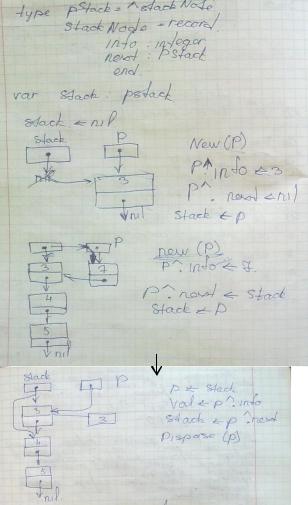 type pStack = ^stackNode
stackNode = record
info : integer
next : pStack
end
var stack : pstack
stack ← nil
stack P
3
nil
New (P)
P^. info ← 3
P^. next ← nil
Stack ← p
P
3 7
4
5
nil
new (p)
P^. info ← 7.
P^. next ← Stack
Stack ← P
stack P
3
5
nil
P ← stack
Val ← p^. info
Stack ← p^. next
Dispose (p)